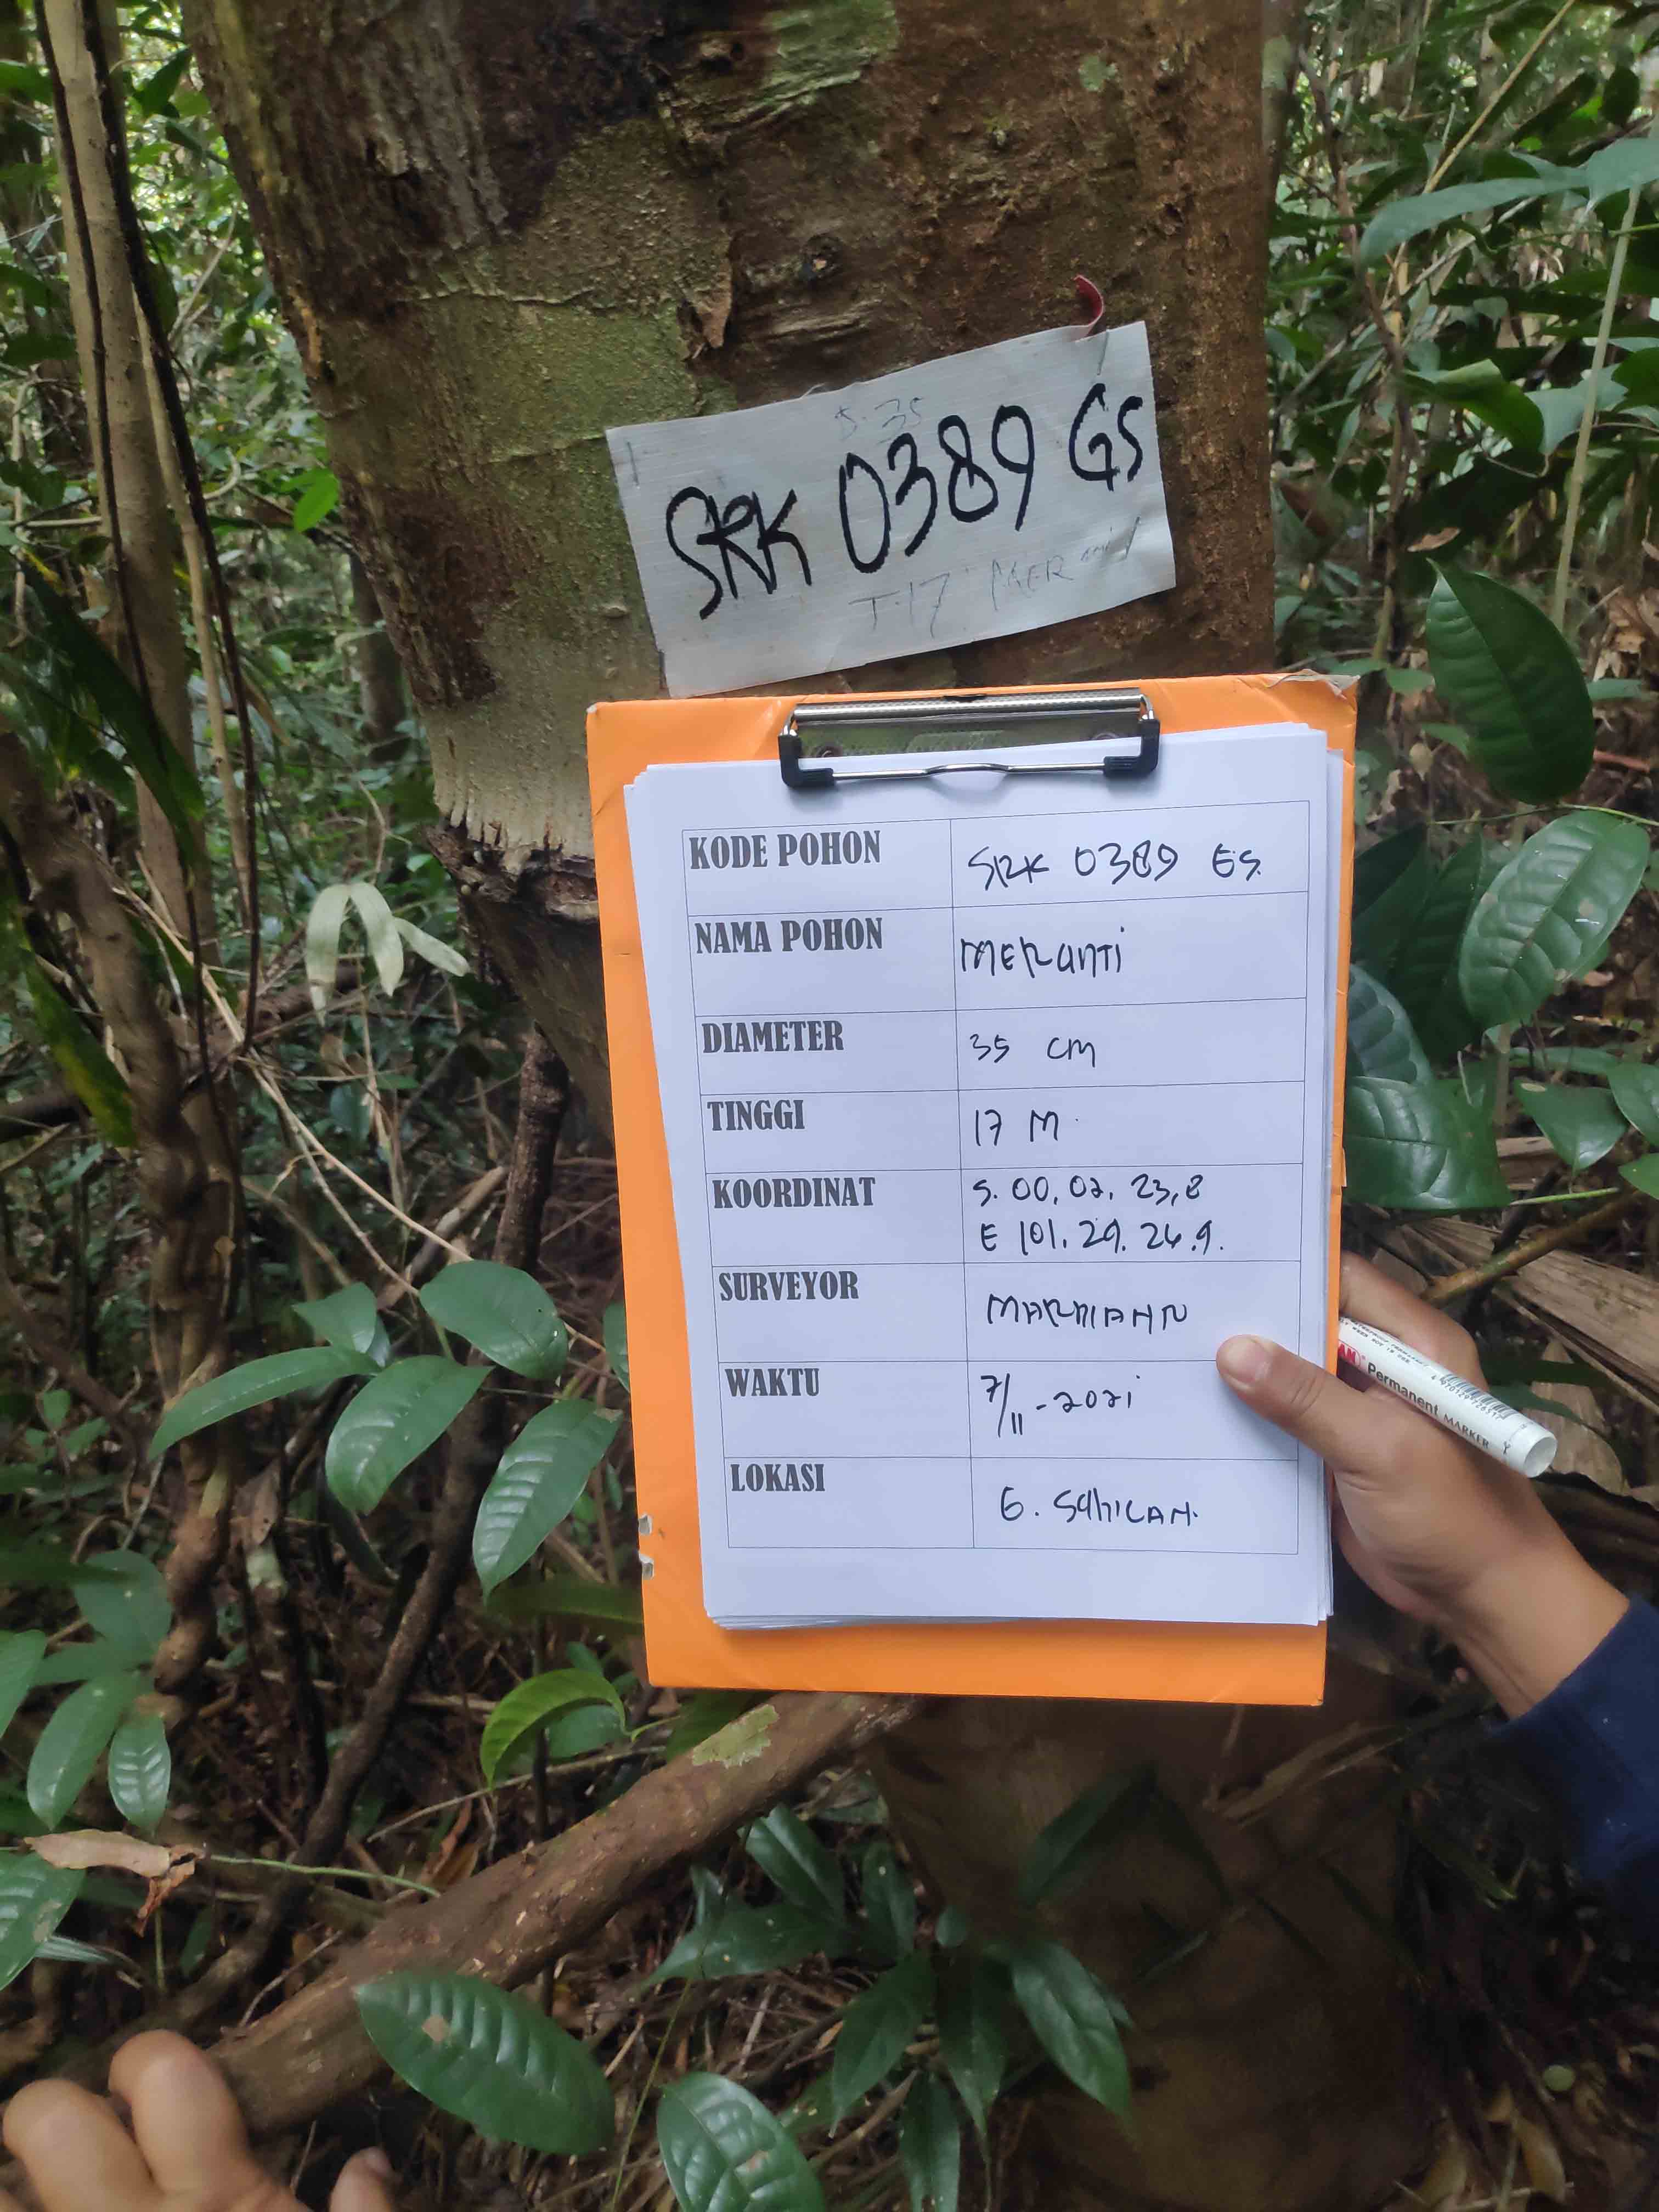 35
SRK 0389 GS
T.17 MER
KODE POHON SRK 0389 GS.
NAMA POHON MERANTI
DIAMETER 35 cm
TINGGI 17 M
KOORDINAT S. 00, 02, 23,8
E 101. 29. 24.9.
SURVEYOR
WAKTU 7/11-2021
LOKASI G. SAHILAN.
Permanent MARKER